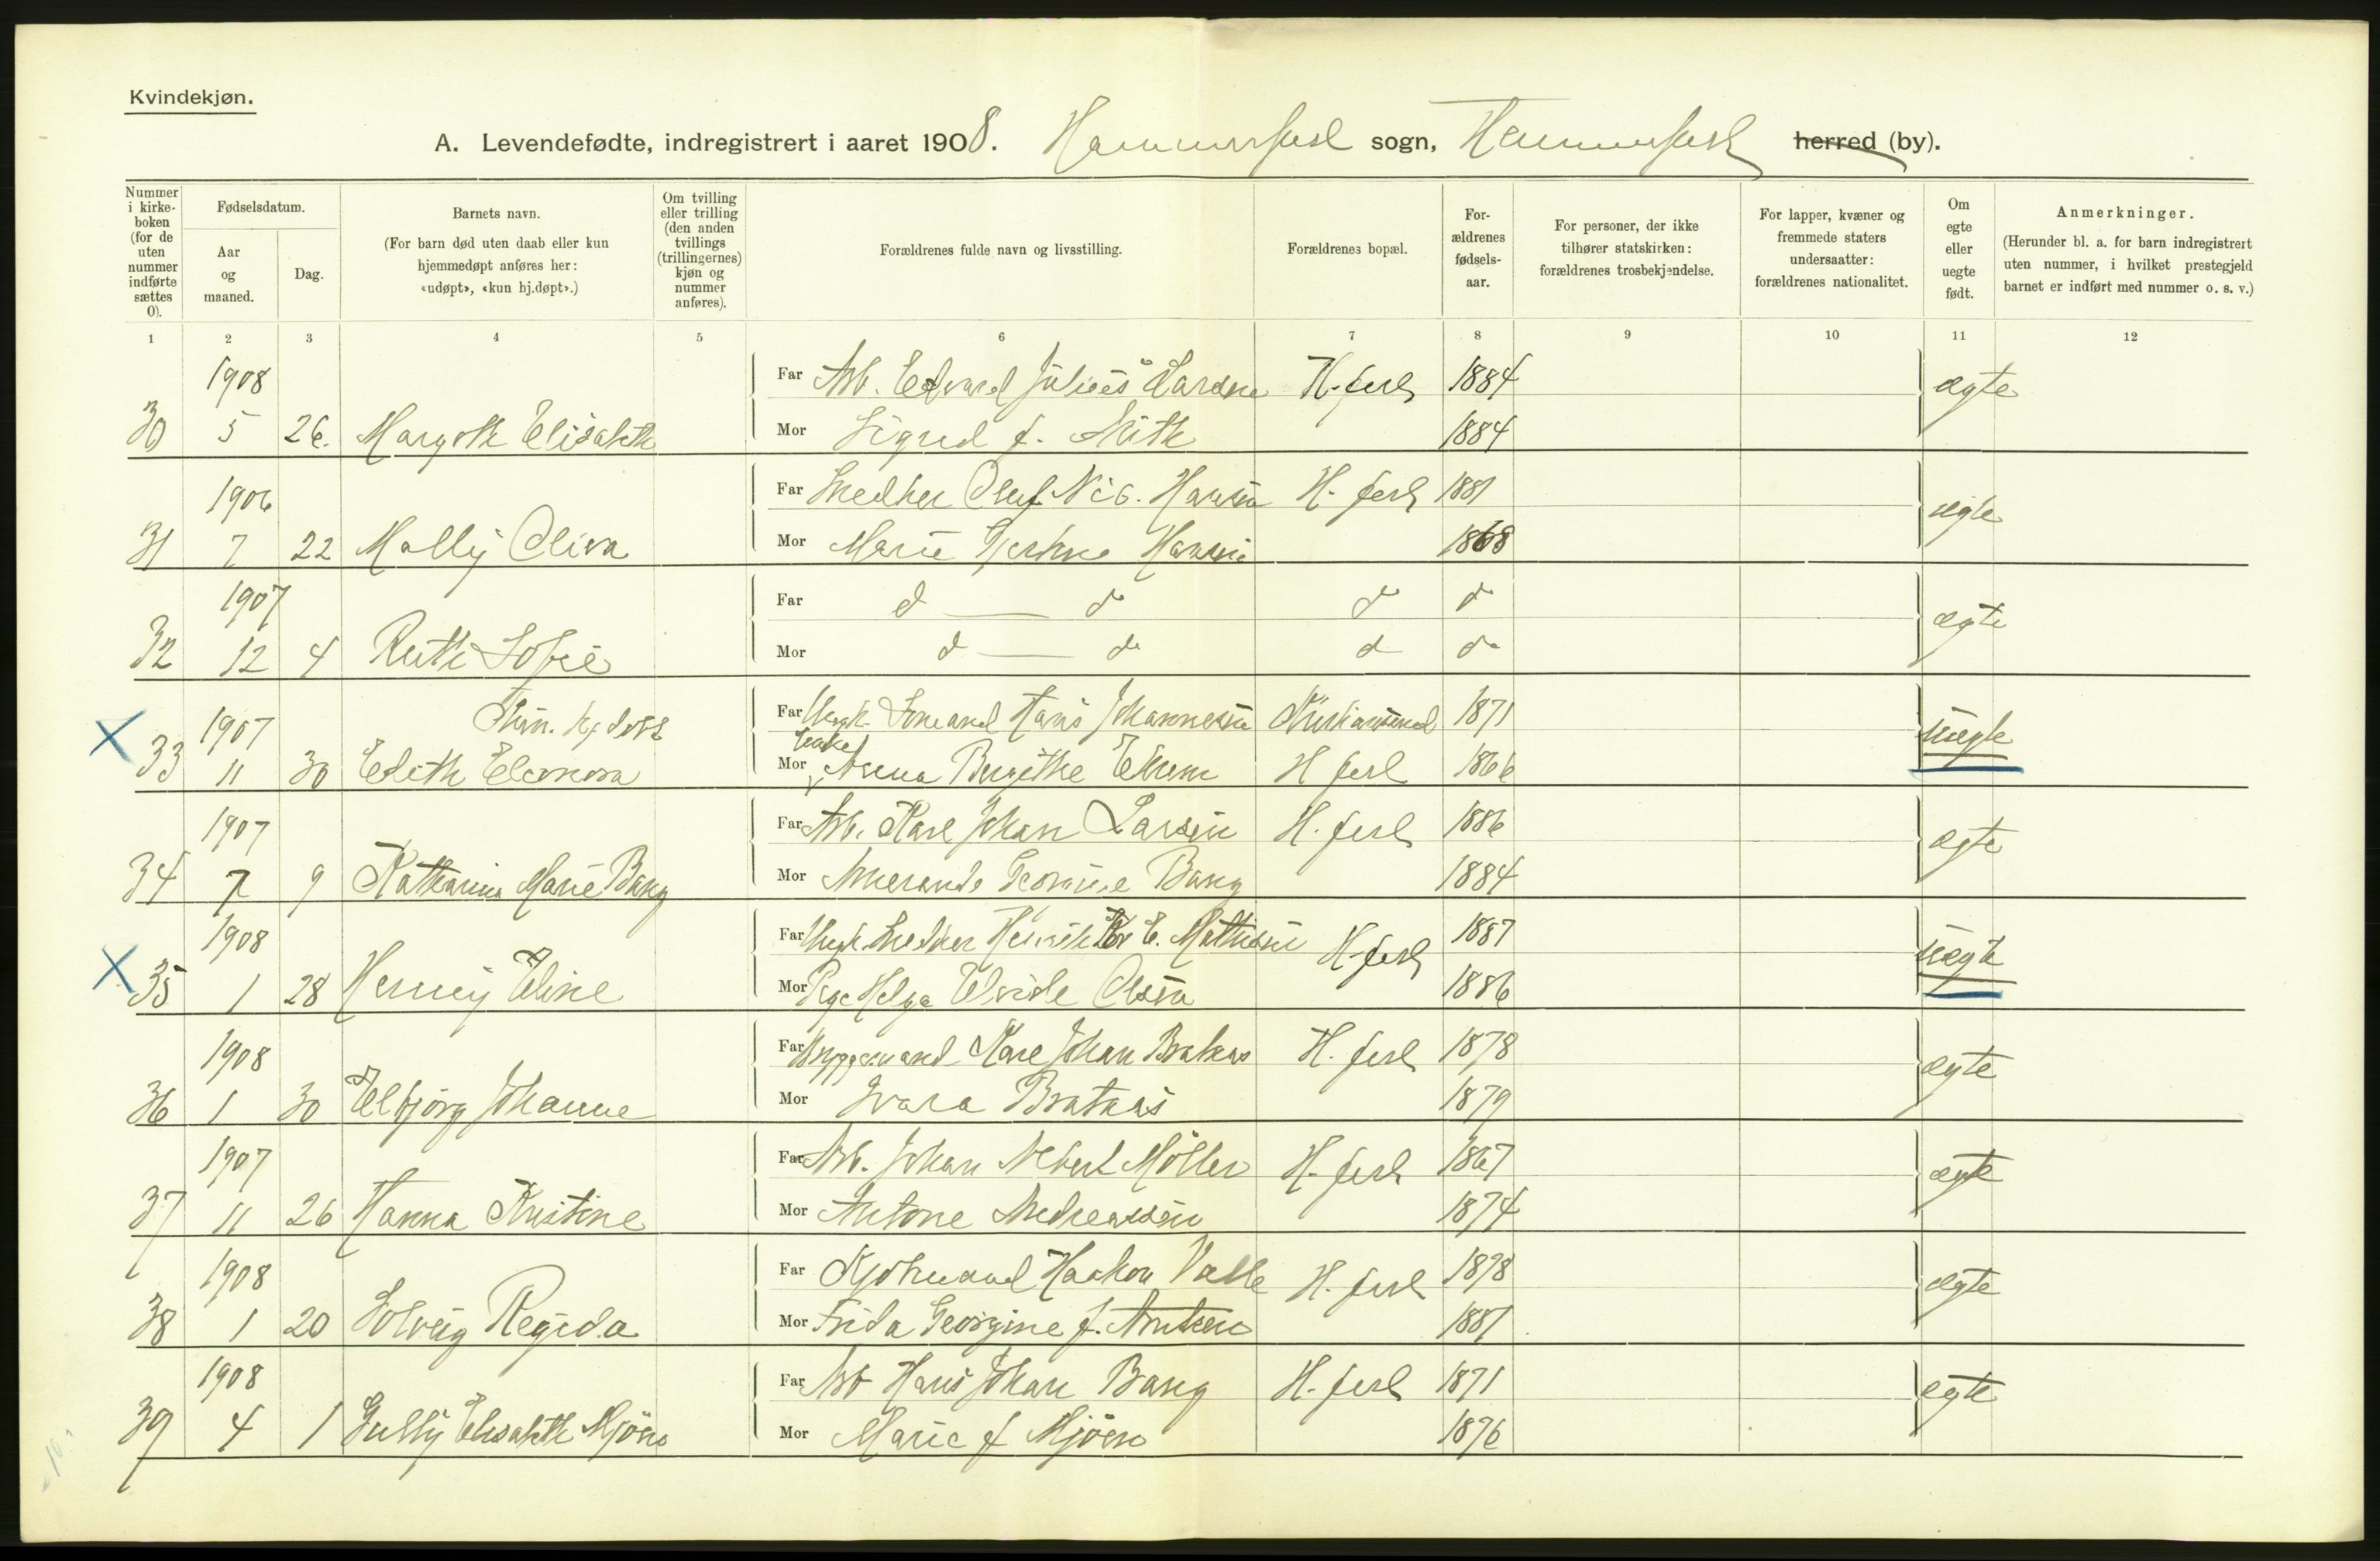 Kvindekjøn.
A. Levendefødte, indregistrert i aaret 1908. Hammerfest sogn, Hammerfest herred (by).
Nummer i kirkeboken (for de uten nummer indførte sættes 0).
Fødselsdatum.
Aar og maaned.
Dag.
Barnets navn.
(For barn død uten daab eller kun hjemmedøpt anføres her: «udøpt», «kun hj.døpt».)
Om tvilling eller trilling (den anden tvillings (trillingernes) kjøn og nummer anføres).
Forældrenes fulde navn og livsstilling.
Forældrenes bopæl.
Forældrenes fødselsaar.
For personer, der ikke tilhører statskirken: forældrenes trosbekjendelse.
For lapper, kvæner og fremmede staters undersaatter: forældrenes nationalitet.
Om egte eller uegte født.
Anmerkninger.
(Herunder bl. a. for barn indregistrert uten nummer, i hvilket prestegjeld barnet er indført med nummer o. s. v.)
1 2 3 4 5 6 7 8 9 10 11 12
1908 Far Arb. Edvard Julius Larsen H.fest 1884 ægte
30 5 26. Margoth Elisabeth Mor Sigrid f. 1884
1906 Far Snedker Oluf Nic. Hansen H. fest 1881 ægte
31 7 22 Molly Oliva Mor Marie Hansen 1868
1907 Far d — do d do ægte
32 12 4 Ruth Sofie Mor d — do d do
1907 Far Ungk. Hans Johannesen Kristiansund 1871 uegte
X 33 11 30 Edith Eleonora Mor Enke Anna Birgithe H fest 1866
1907 Far Arb. Karl Johan Larsen H. fest 1886 ægte
34 7 9 Katharina Marie Bang Mor Bang 1884
1908 Far Ungk. Snedker Henrik E. Mathisen H.fest 1887 uægte
X 35 1 28 Henny Eline Mor Pige Helga Olsen 1886
1908 Far Bryggemand Karl Johan Brataas H. fest 1878 ægte
36 1 30 Elbjørg Johanne Mor Ivara Brataas 1879
1907 Far Arb. Johan Albert Møller H. fest 1867 ægte
37 11 26 Hanna Kristine Mor Antone Andreassen 1874
1908 Far Haakon Valle H. fest 1878 ægte
38 1 20 Solveig Regida Mor Frida Georgine f. Arntzen 1881
1908 Far Arb Hans Johan Bang H. fest 1871 ægte
39 4 1 Gully Elisabeth Mjøen Mor Marie f Mjøen 1876